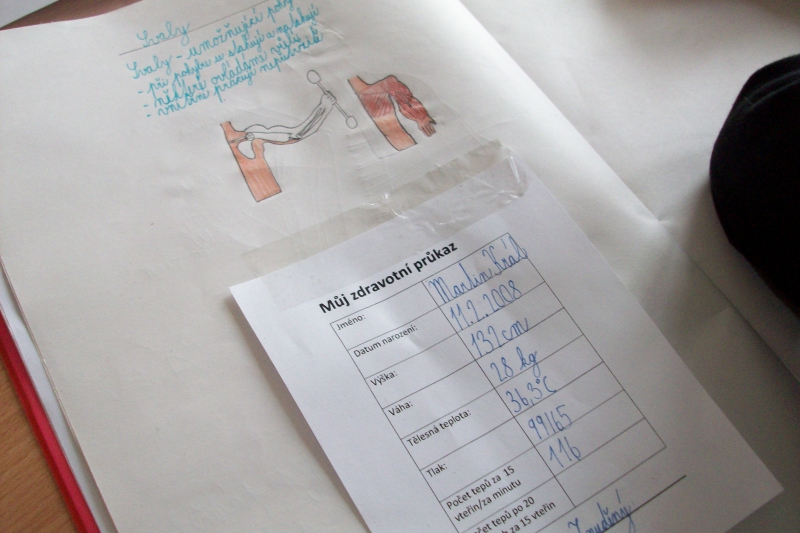 Svaly
Svaly - umožňující pohyb
- při pohybu se stahují a natahují
- některé ovládáme vůlí
- vnitřní pracují nepřetržitě
Můj zdravotní průkaz
Jméno: Martin Král
Datum narození: 11.2.2008
Výška: 132cm
Váha: 28 kg
Tělesná teplota: 36,3°C
Tlak: 99/65
Počet tepů za 15
vteřin/za minutu 116
Počet tepů po 20
za 15 vteřin